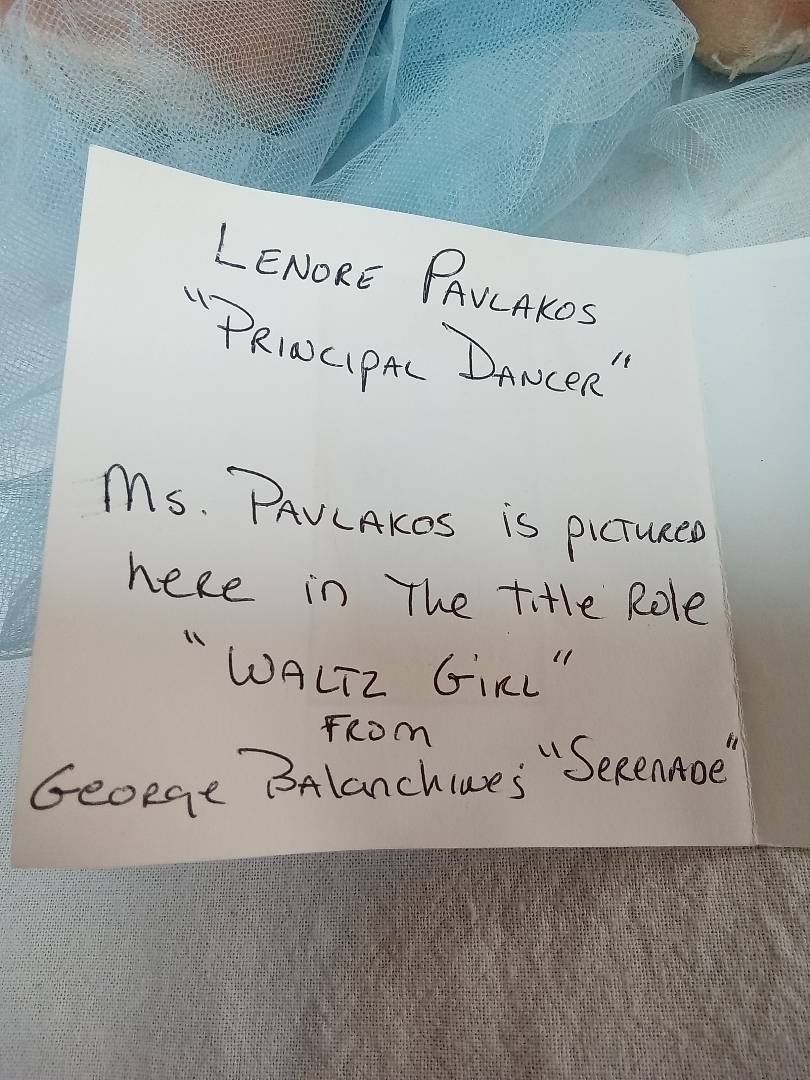 LENORE PAVLAKOS
"PRINCIPAL DANCER"
Ms. PAVLAKOS is pictured
here in The title Role
"WALTZ GiRL"
FROM
George BAlanchines "SeRenADe"